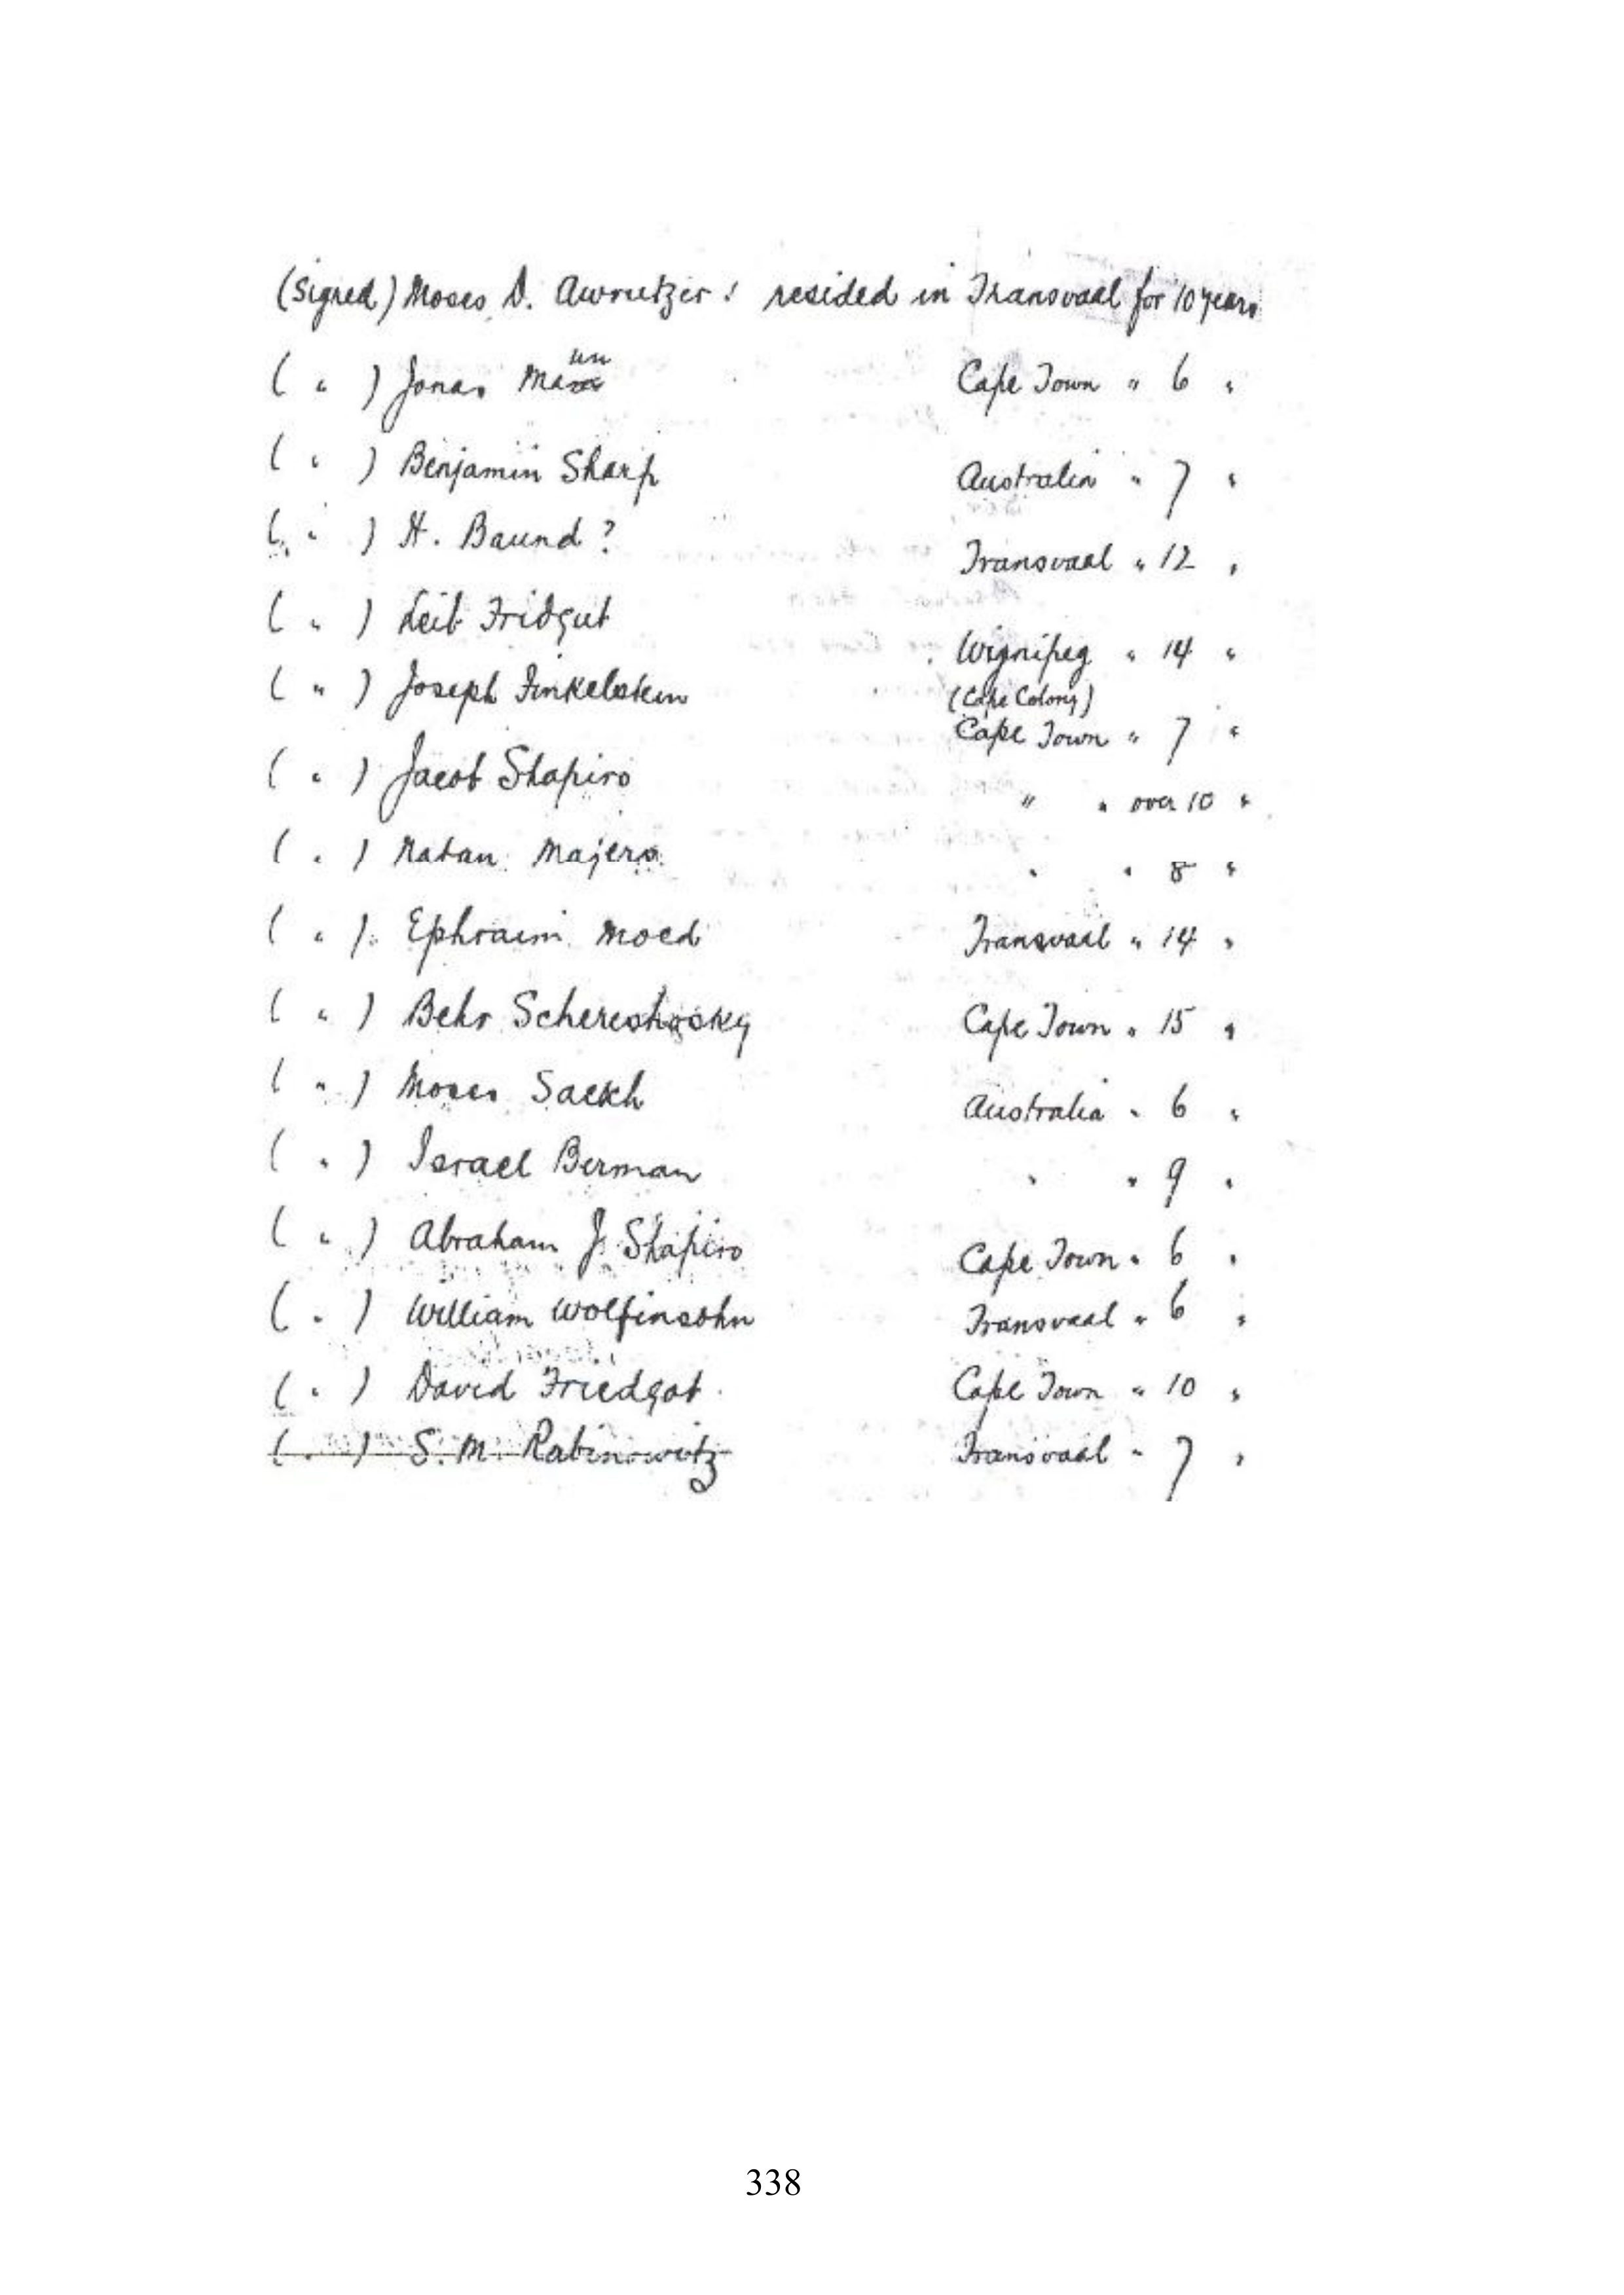 (Signed) Moses D. Awrutzer : resided in Transvaal for 10 years
( " ) Jonas Maun Cape Town " 6 "
( " ) Benjamin Sharp Australia " 7 "
( " ) H. Baund? Transvaal " 12 "
( " ) Leib Fridgut Wignipeg " 14 "
(Cape Colony)
( " ) Joseph Finkelstein Cape Town " 7 "
( " ) Jacob Shapiro " " over 10 "
( " ) Natan Majero " " 8 "
( " ) Ephraim Moed Transvaal " 14 "
( " ) Behr Schereshosky Cape Town " 15 "
( " ) Moses Saekh Australia " 6 "
( " ) Israel Berman " " 9 "
( " ) Abraham J. Shapiro Cape Town " 6 "
( " ) William Wolfinsohn Transvaal " 6 "
( " ) David Friedgot Cape Town " 10 "
( " ) S. M. Rabinowitz Transvaal " 7 "
338